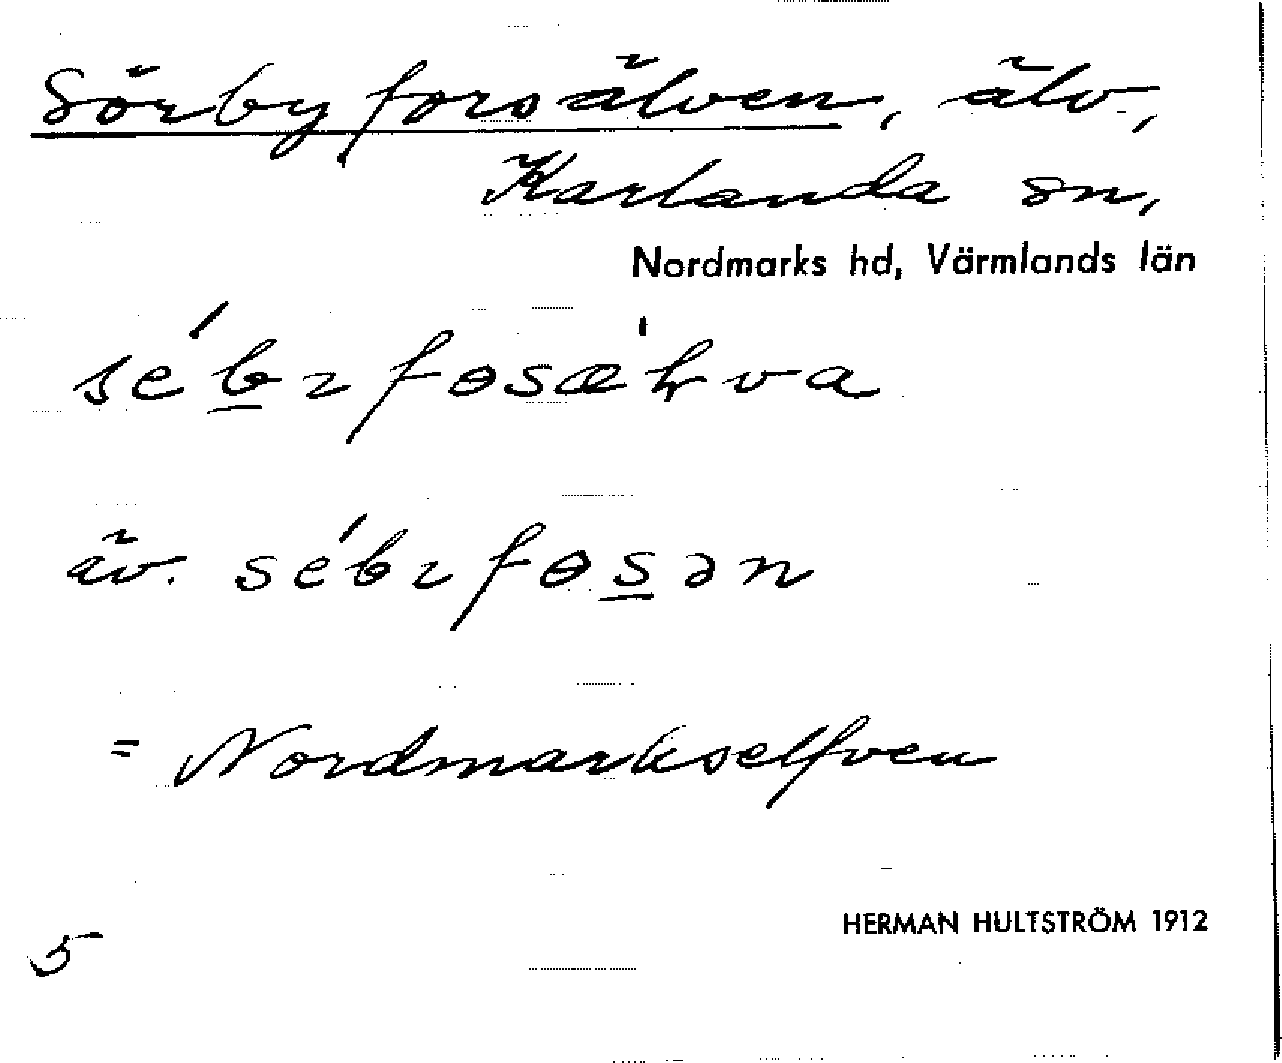 Sörbyforsälven, älv.,
Karlanda sn,
Nordmarks hd, Värmlands län
äv.
= Nordmarkselfven
HERMAN HULTSTRÖM 1912
5